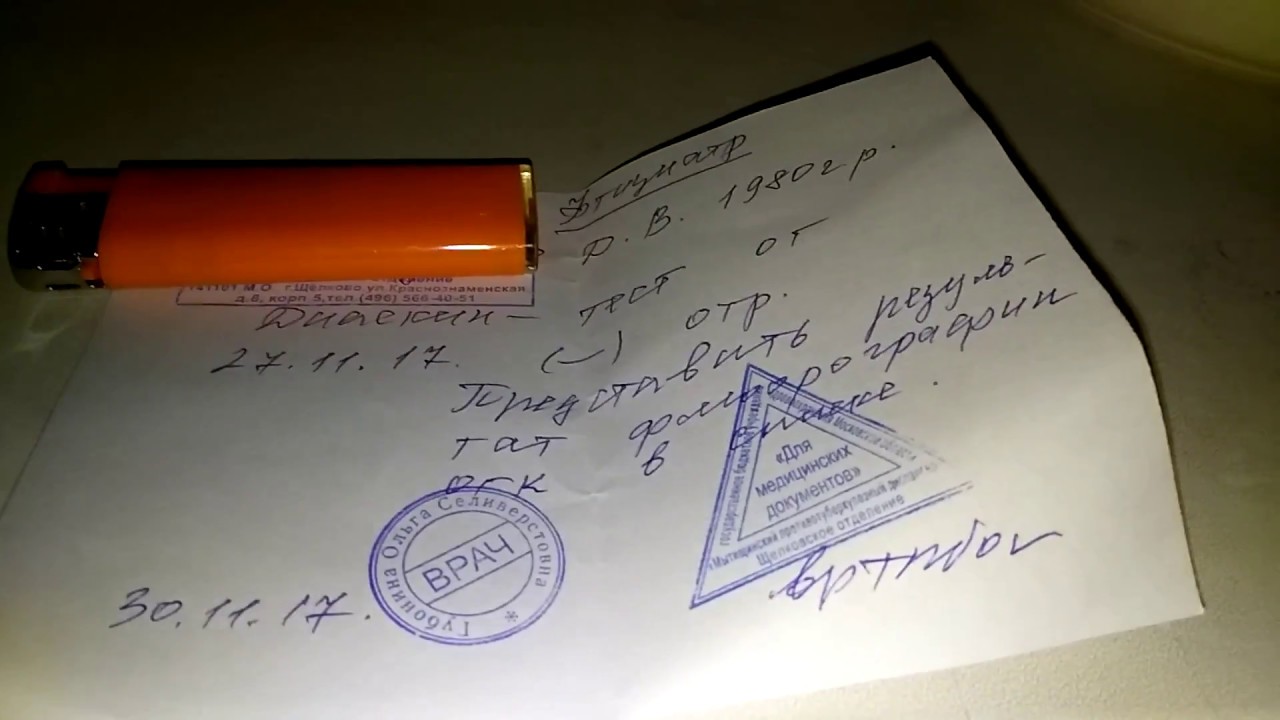 Фтизиатр
Д. В. 1980 г р.
141101 М.О г.Щёлково ул.Краснознаменская
д.6, корп 5,тел.(496) 566-40-51
Диаскин- тест от
27.11.17. (-) отр.
Представить резуль-
тат флюорографии
ОГК в
30.11.17.
Губонина Ольга Селиверстовна
ВРАЧ
Государственное бюджетное учреждение
здравоохранения Московской области
«Мытищинский противотуберкулезный диспансер
Щелковское отделение
«Для
медицинских
документов»